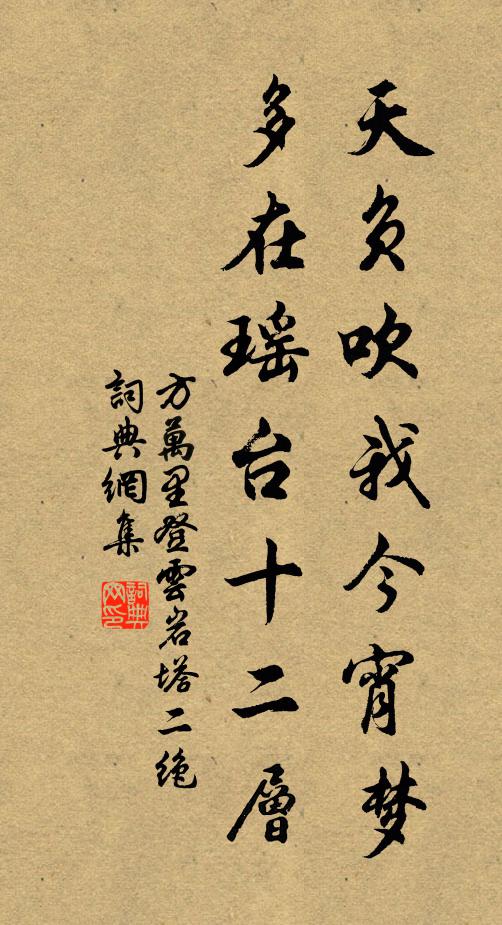 天负吹我今宵梦
多在瑶台十二層
方萬里登雲岩塔二绝
詞典網集
詞典网印